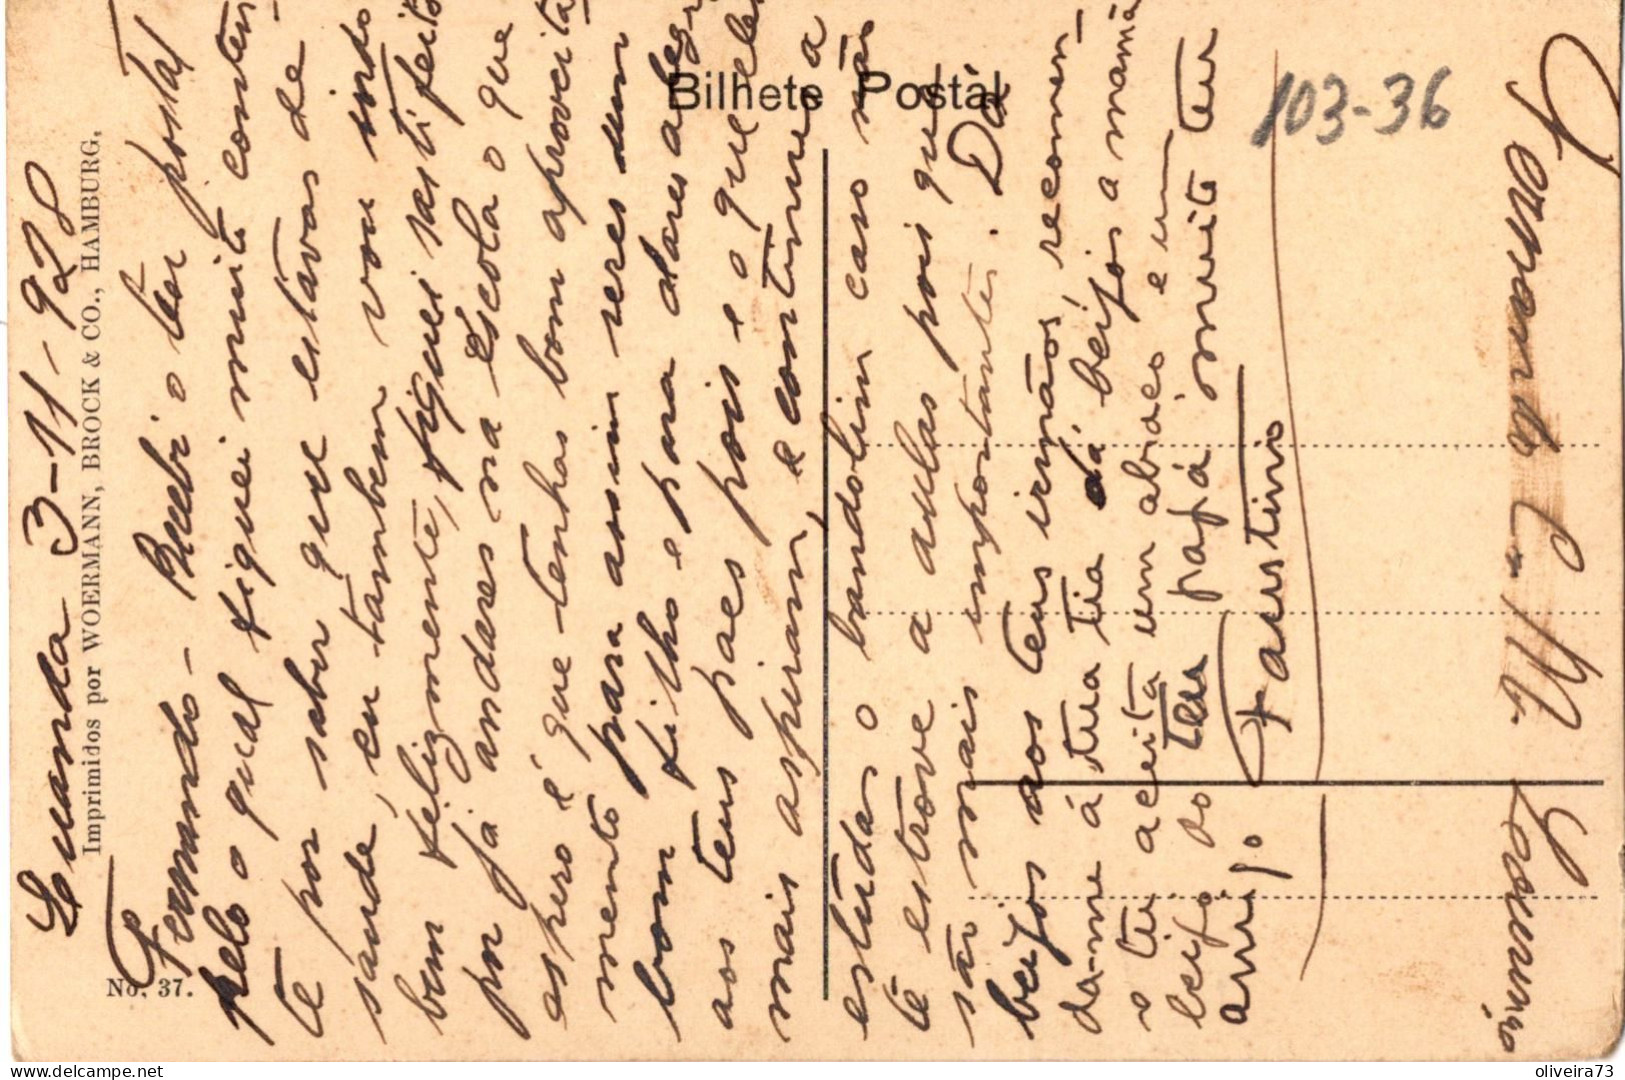 Bilhete Postál
103-36
No. 37.
Imprimidos por WOERMANN, BROCK & CO., HAMBURG,
Luanda 3-11-928
Fernando - Recebi o teu postal
pelo o qual fiquei muito conten-
te por saber que estavas de
saude, eu tambem vou indo
bem felizmente, fiquei satisfeito
por já andares na escola o que
espero é que tenhas bom aproveita-
mento para assim seres um
bom filho e para dares alegr
aos teus paes pois é o que eles
mais aspiram, e continua a
estudar o bandolim caso não
te estrove a aulas pois que
são mais importantes. Dá
beijos aos teus irmãos, recomen-
da-me á tua tia dá beijos a mamã
e tu aceita um abraço e um
beijo do teu papá muito teu
amigo
Faustino
Fernando C. M. Lourenço
oliveira73